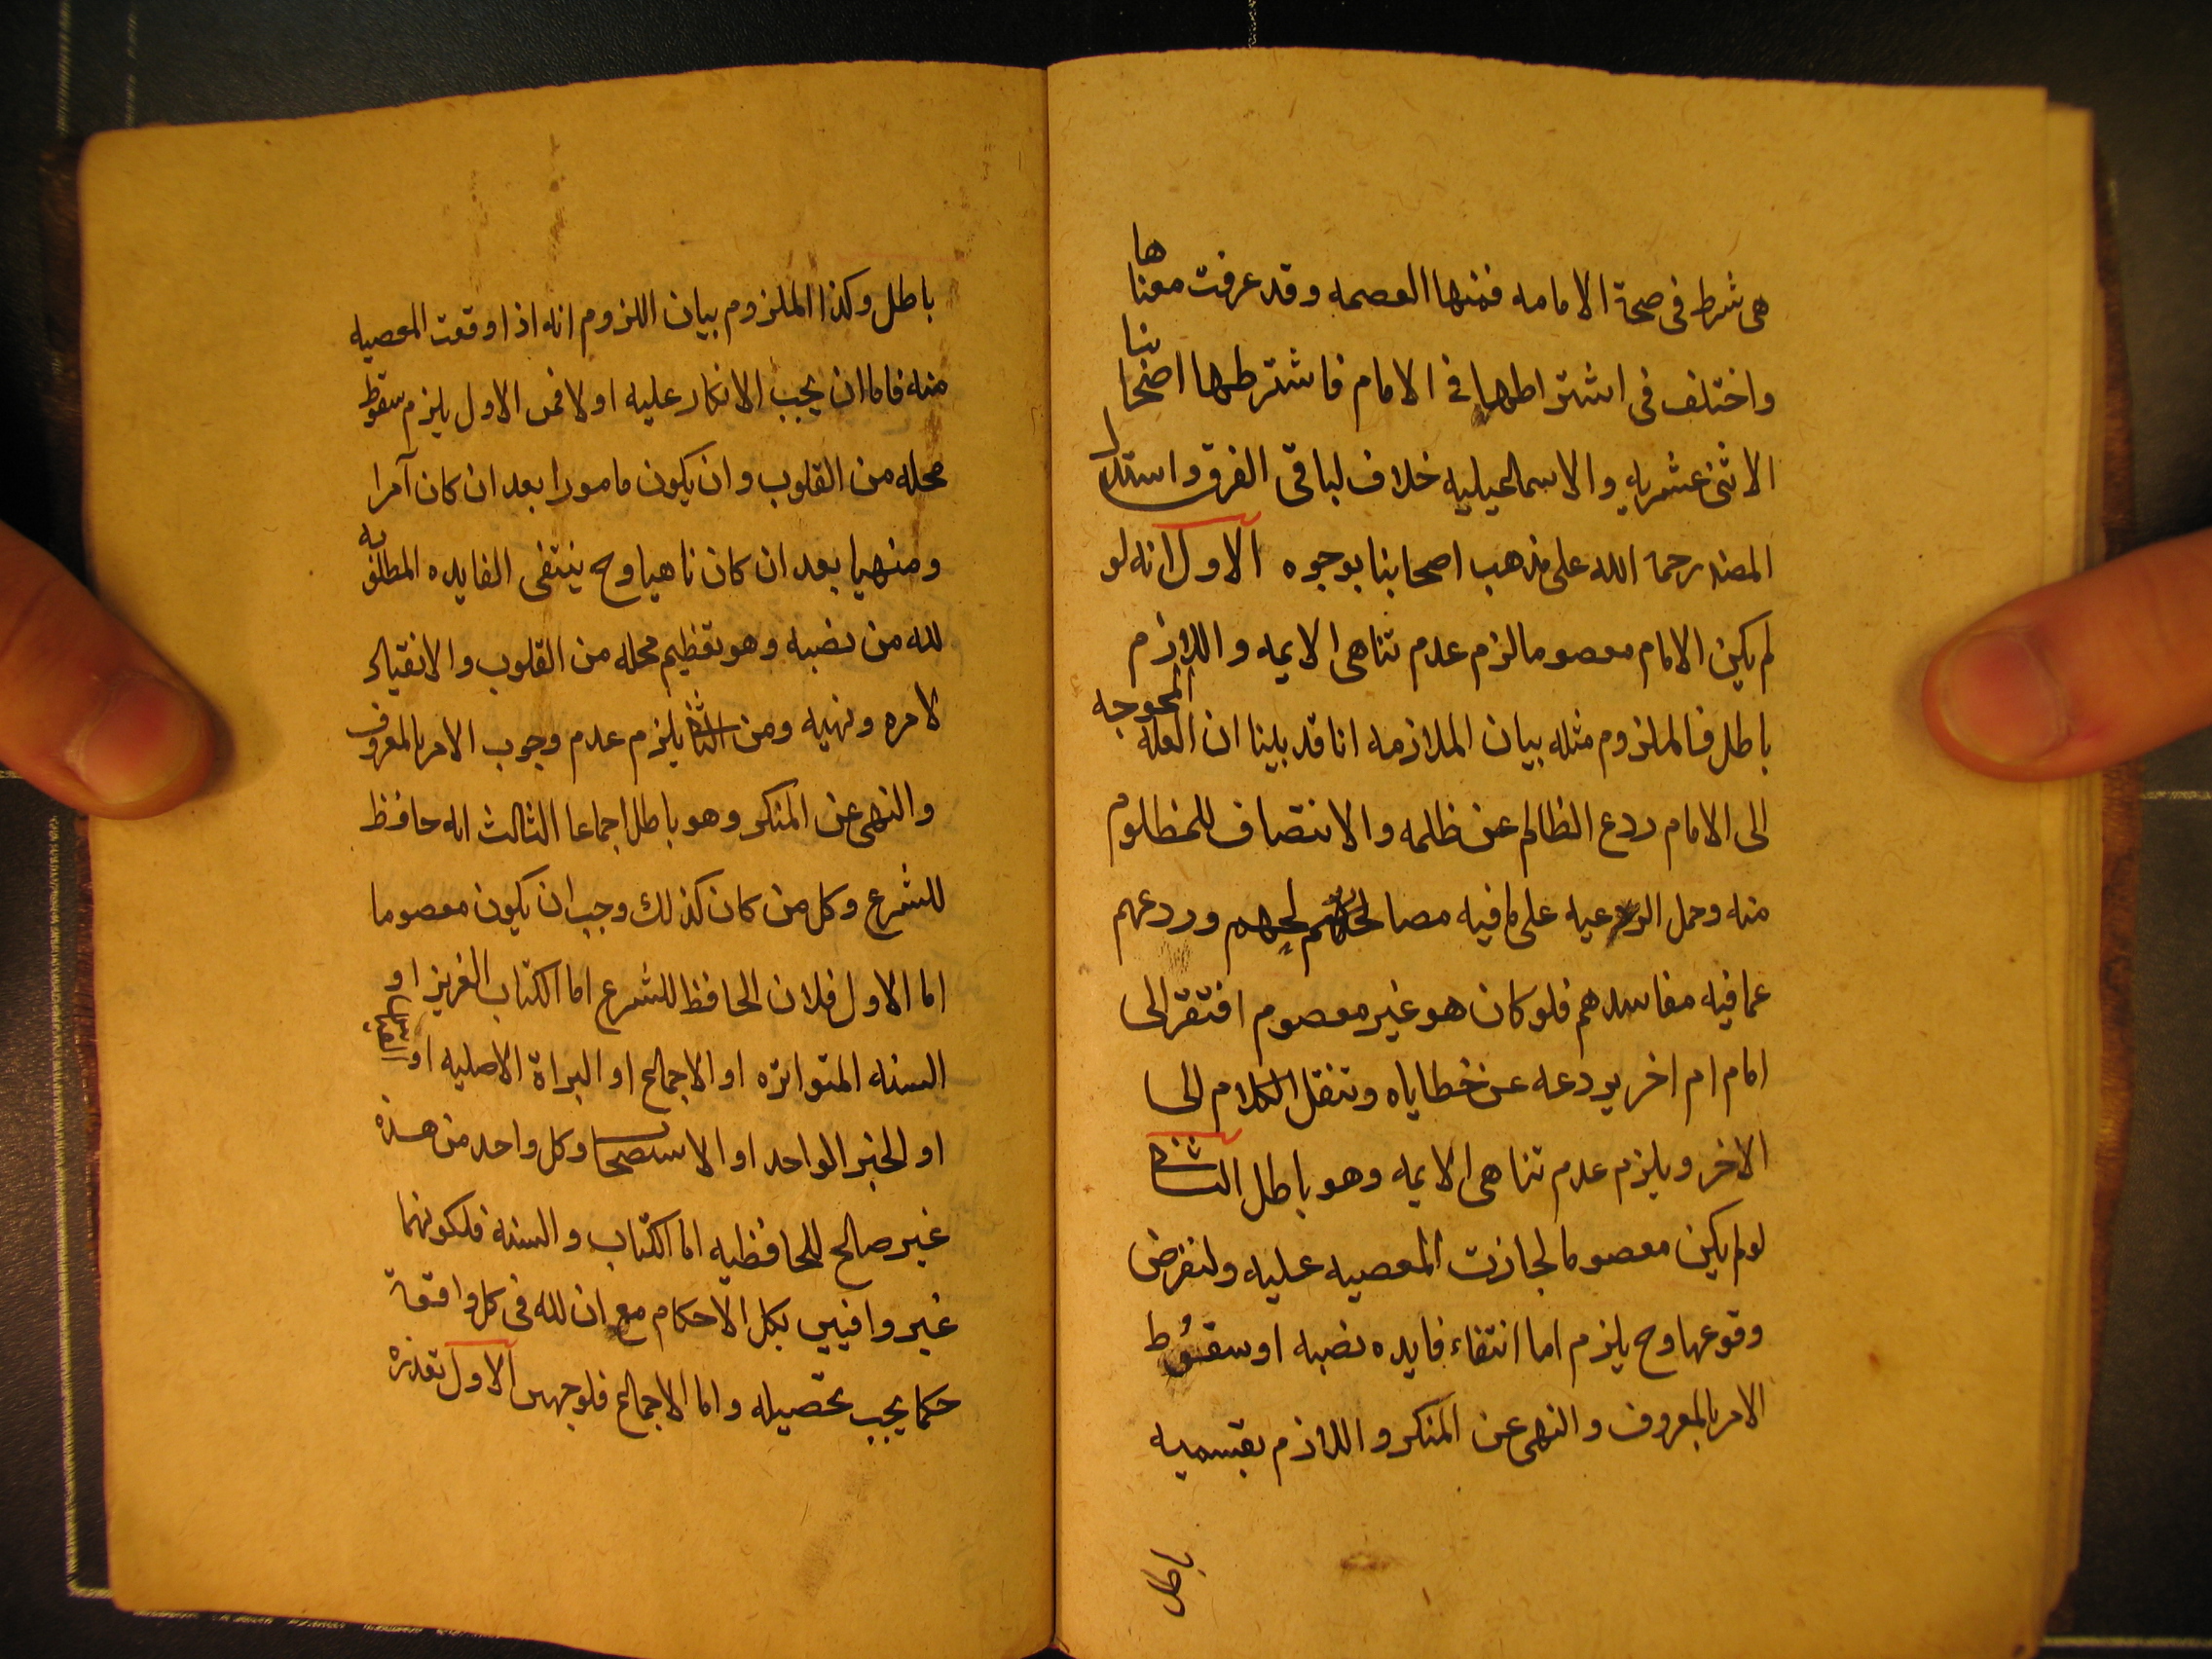 هى شرط فى صحة الامامه فمنها العصمه وقد عرفت معناها
واختلف فى اشتراطها فى الامام فاشترطها اصحابنا
الاثنى عشريه والاسماعيليه خلاف لباقى الفرق واستدل
المصنف رحمة الله على مذهب اصحابنا بوجوه الاول انه لو
لم يكن الامام معصوما لزم عدم تناهى الايمه واللازم
باطل فالملزوم مثله بيان الملازمه انا قد بينا ان العله المحوجه
الى الامام ردع الظالم عن ظلمه والانتصاف للمظلوم
منه وحمل الرعيه على ما فيه مصالحهم وردعهم
عما فيه مفاسدهم فلو كان هو غير معصوم افتقر الى
امام ام اخر يردعه عن خطاياه وننقل الكلام الى
الاخر ويلزم عدم تناهى الايمه وهو باطل الثانى
لو لم يكن معصوما لجازت المعصيه عليه ولنفرض
وقوعها وح يلزم اما انتفاء فايده نصبه او سقوط
الامر بالمعروف والنهى عن المنكر واللازم بقسميه
باطل
باطل وكذا الملزوم بيان اللزوم انه اذا وقعت المعصيه
منه فاما ان يجب الانكار عليه او لا فمن الاول يلزم سقوط
محله من القلوب وان يكون مامورا بعد ان كان آمرا
ومنهيا بعد ان كان ناهيا وح ينتفى الفايده المطلوبه
لله من نصبه وهو تعظيم محله من القلوب والانقياد
لامره ونهيه ومن الثانى يلزم عدم وجوب الامر بالمعروف
والنهى عن المنكر وهو باطل اجماعا الثالث انه حافظ
للشرع وكل من كان كذلك وجب ان يكون معصوما
اما الاول فلان الحافظ للشرع اما الكتاب العزيز او
السنه المتواتره او الاجماع او البراة الاصليه او
او الخبر الواحد او الاستصحاب وكل واحد من هذه
غير صالح للمحافظيه اما الكتاب والسنه فلكونهما
غير وافيين بكل الاحكام مع ان لله فى كل واقعة
حكما يجب تحصيله واما الاجماع فلوجهين الاول تعذره